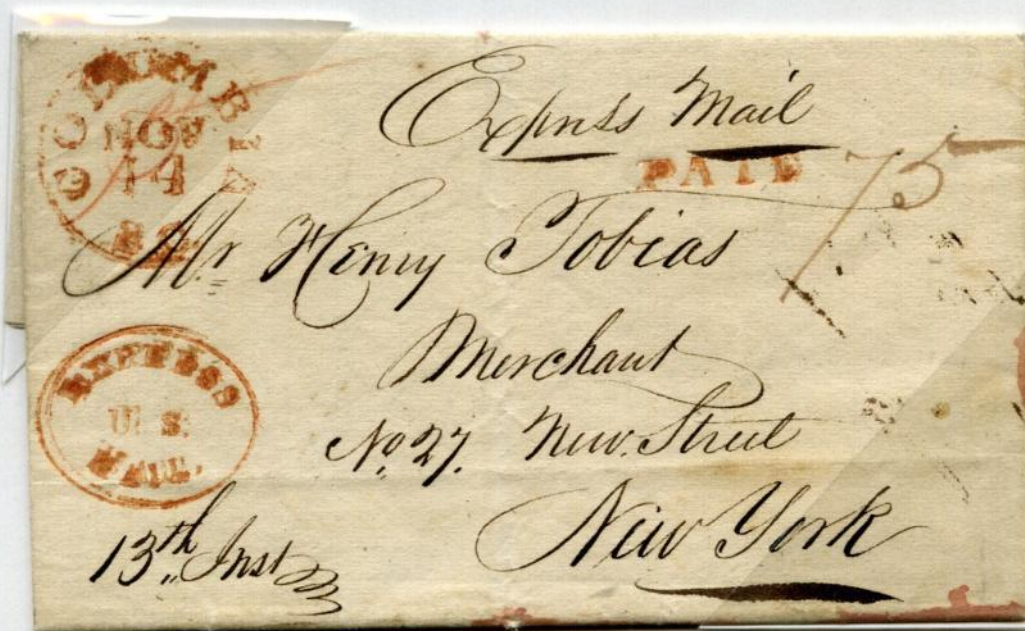 COLUMBIA
NOV
14
S.C.
Express Mail
PAID 75
Mr Henry Tobias
Merchant
No 27. New Street
New York
EXPRESS
U. S.
MAIL.
13th Inst